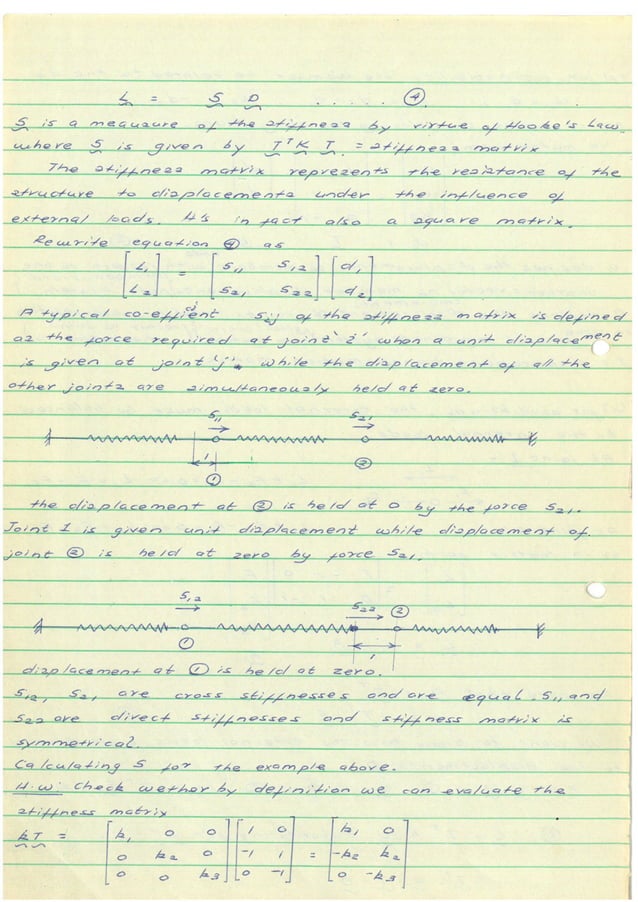 L = S D ..... ④.
S is a meauzure of the stiffness by virtue of Hooke's Law.
where S is given by TᵀK T. = stiffness matrix
The stiffness matrix represents the resistance of the
structure to displacements under the influence of
external loads. It's in fact also a square matrix.
Rewrite equation ④ as
[L₁ L₂] = [S₁₁ S₁₂ S₂₁ S₂₂] [d₁ d₂]
A typical co-efficient Sij of the stiffness matrix is defined
as the force required at joint 'i' when a unit displacement
is given at joint 'j', while the displacement of all the
other joints are simultaneously held at zero.
S₁₁ S₂₁
1
① ②
the displacement at ② is held at 0 by the force S₂₁.
Joint 1 is given unit displacement while displacement of
joint ② is held at zero by force S₂₁.
S₁₂ S₂₂ ②
①
1
displacement at ① is held at zero.
S₁₂, S₂₁ are cross stiffnesses and are equal. S₁₁ and
S₂₂ are direct stiffnesses and stiffness matrix is
symmetrical.
Calculating S for the example above.
H.W: Check wether by definition we can evaluate the
stiffness matrix
kT = [k₁ 0 0 0 k₂ 0 0 0 k₃] [1 0 -1 1 0 -1] = [k₁ 0 -k₂ k₂ 0 -k₃]